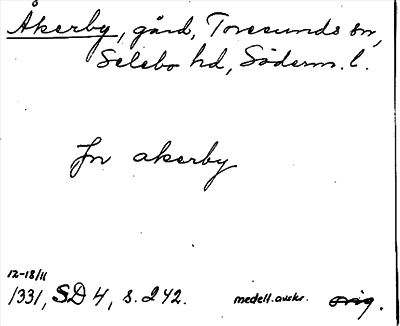 Åkerby, gård, Toresunds sn,
Selebo hd, Söderm. l.
Jn akerby
12-18/11
1331, SD 4, s. 242.
medelt. avskr. orig.